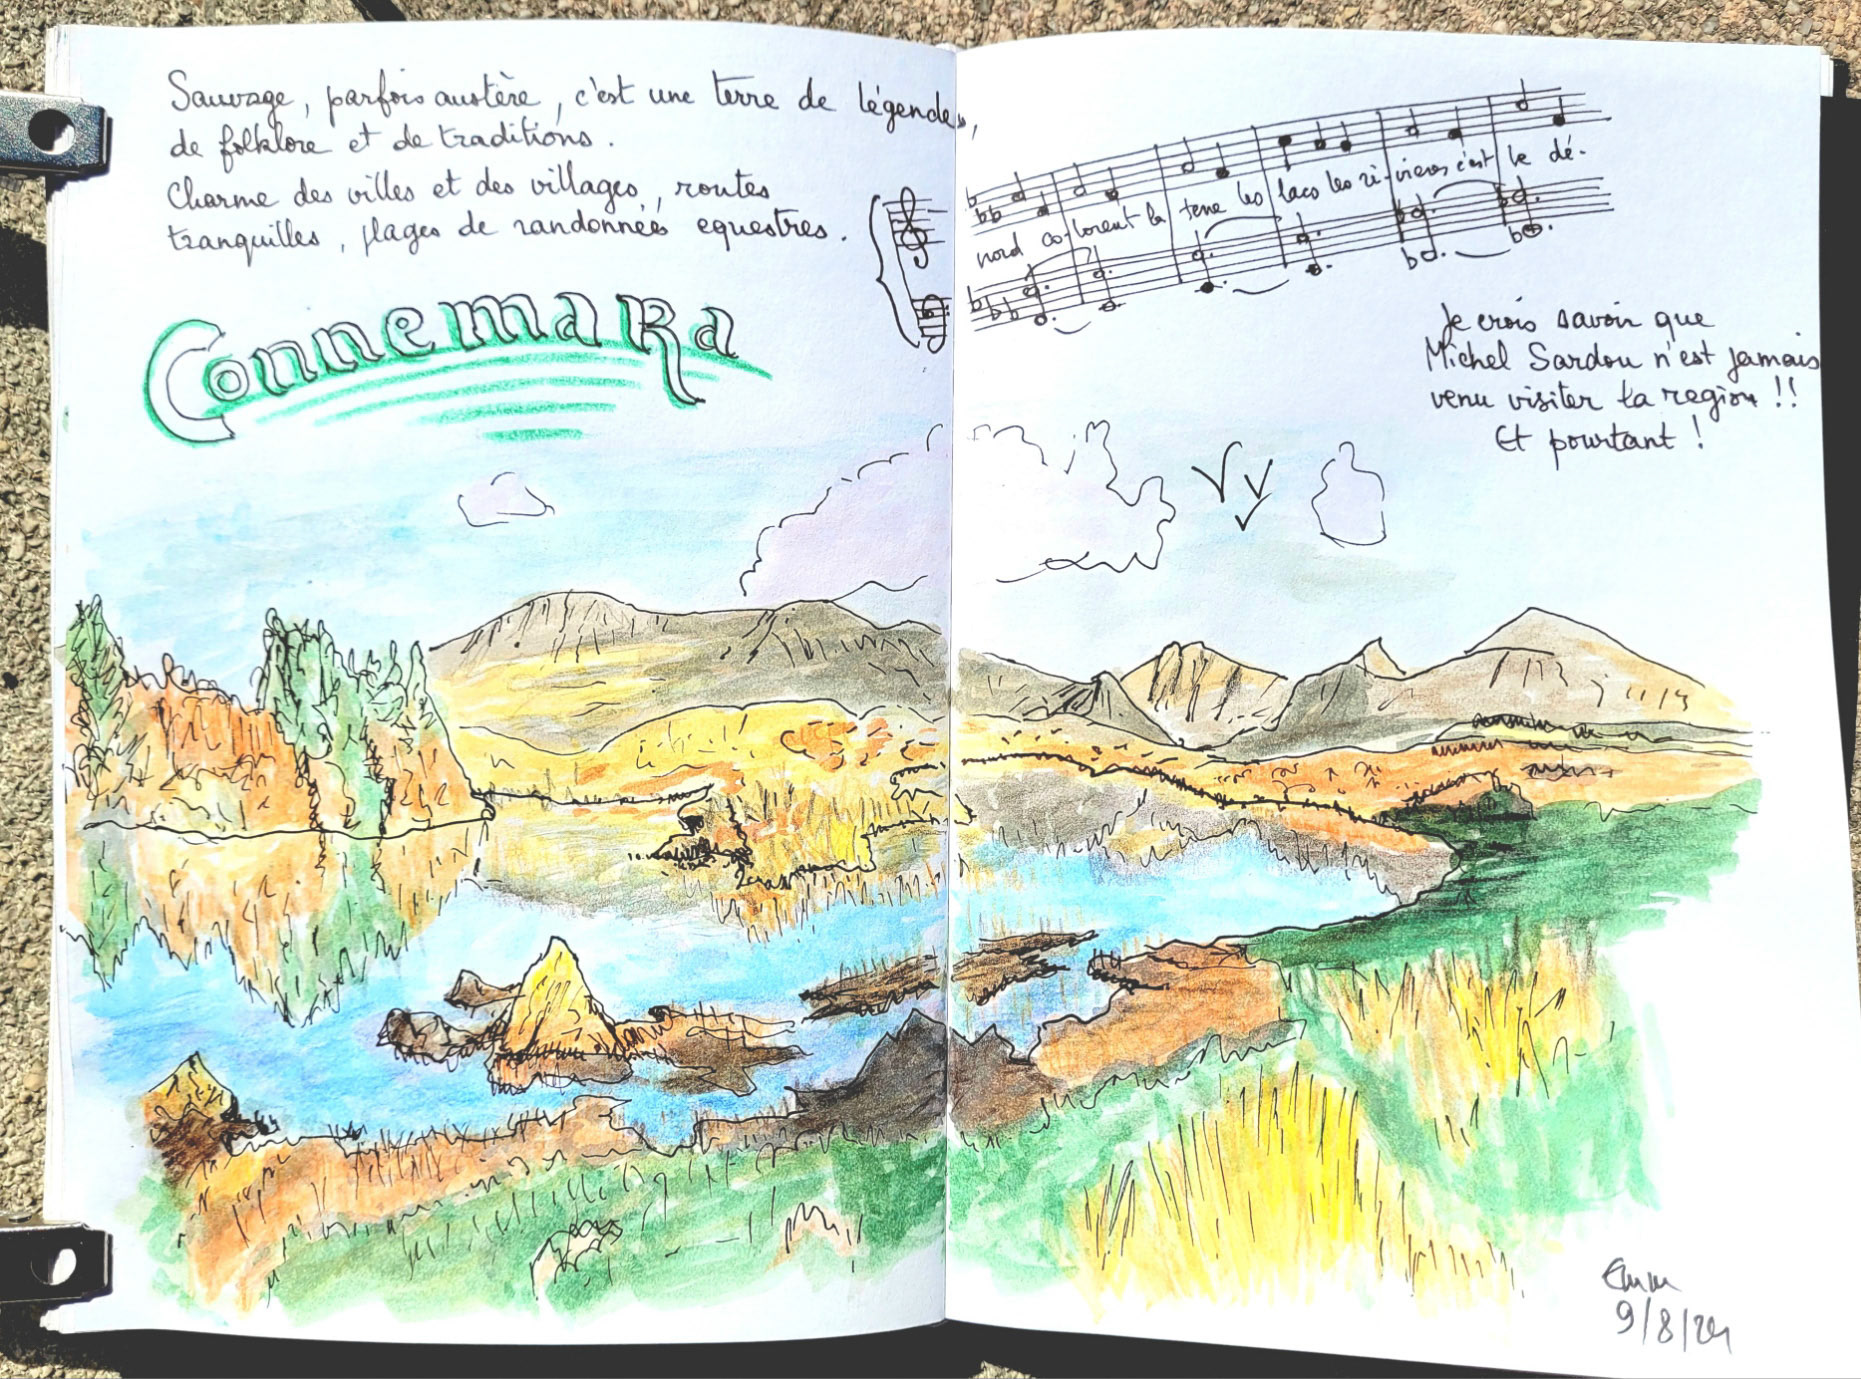 Sauvage, parfois austère, c'est une terre de légendes,
de folklore et de traditions.
Charme des villes et des villages, routes
tranquilles, plages de randonnées equestres.
Connemara
nord co-lorent la terre les lacs les ri-vières c'est le dé-
Je crois savoir que
Michel Sardou n'est jamais
venu visiter la region !!
Et pourtant !
9/8/24